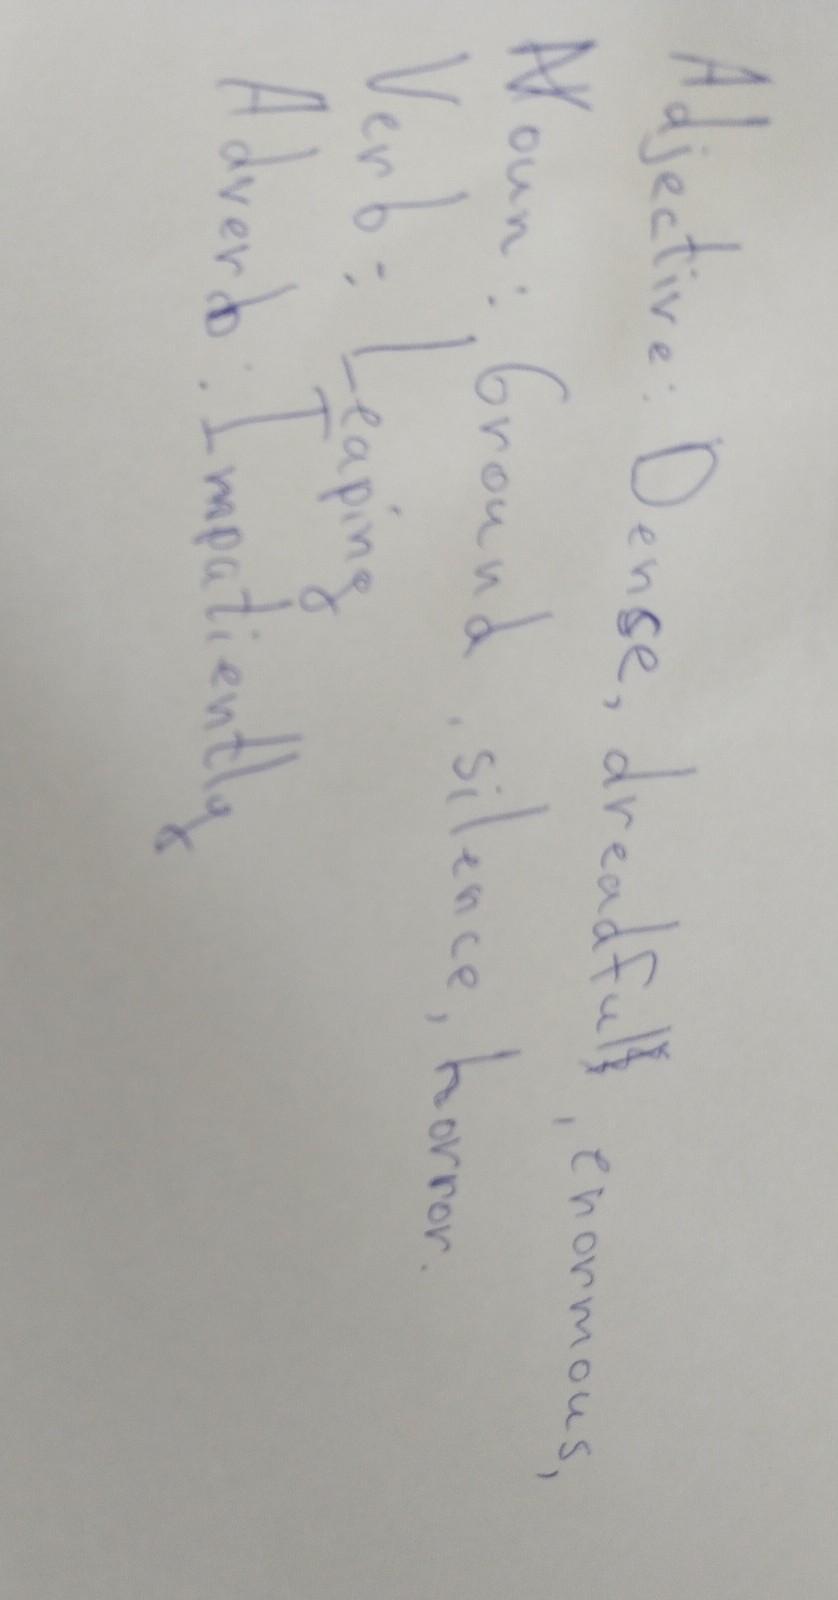 Adjective: Dense, dreadful, enormous,
Noun: Ground, silence, horror.
Verb: Leaping
Adverb: Impatiently